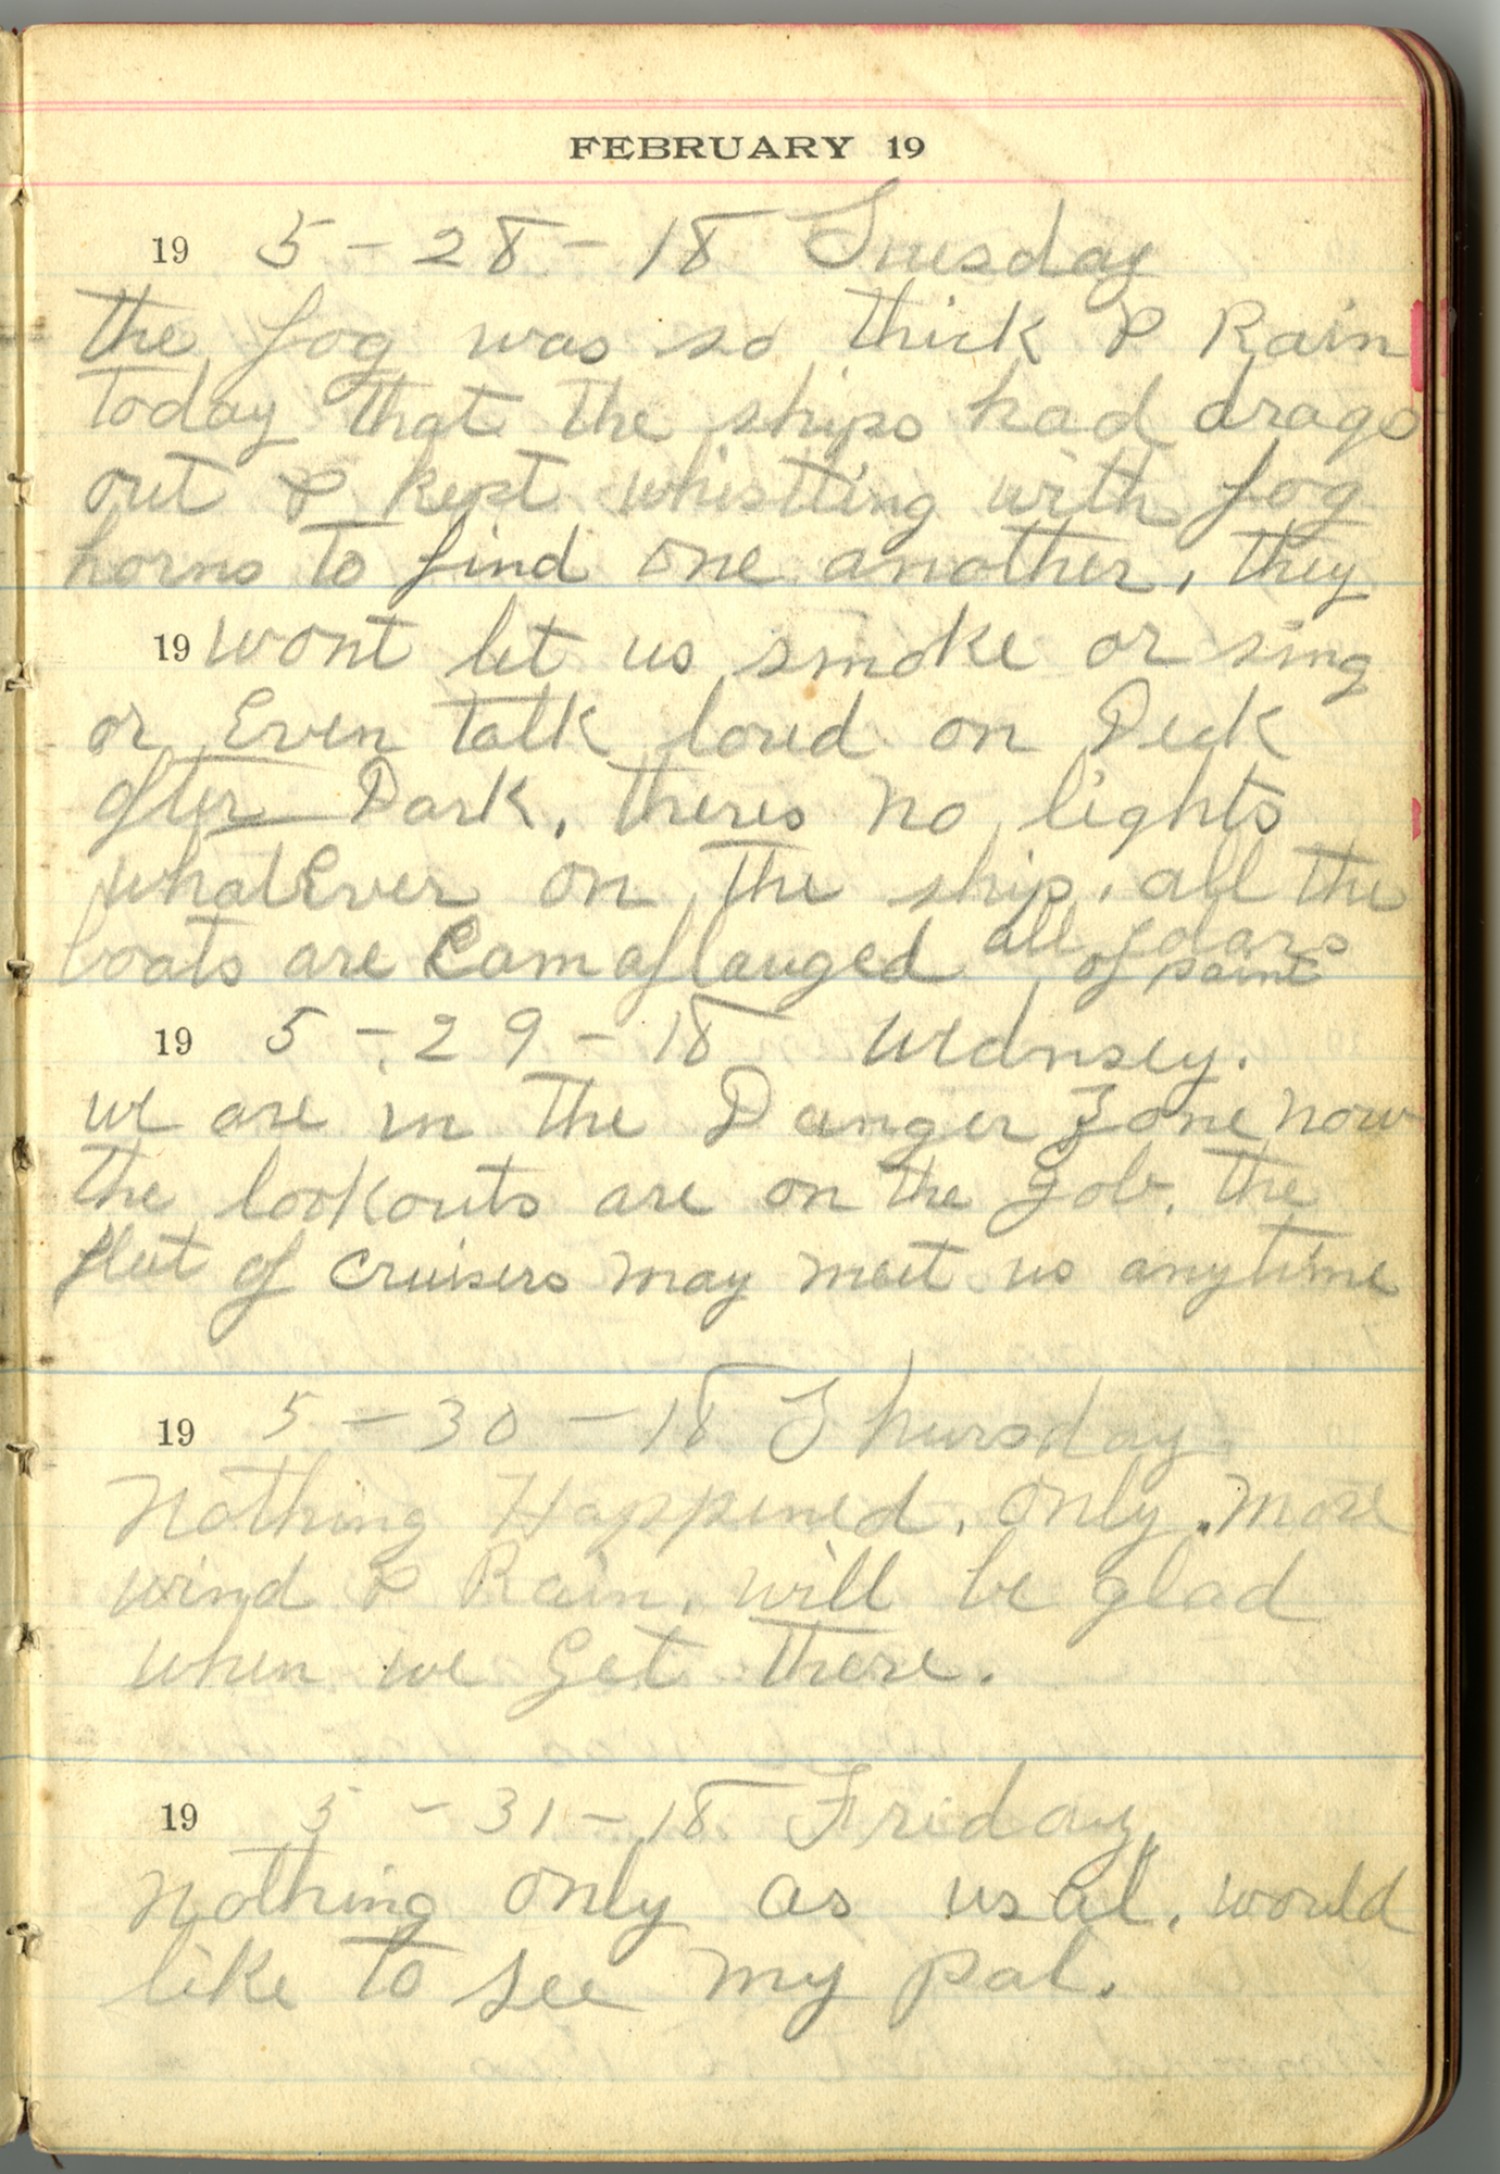 FEBRUARY 19
19 5-28-18 Tuesday
the fog was so thick & Rain
today that the ships had drags
out & kept whistling with fog
horns to find one another, they
19 wont let us smoke or sing
or Even talk loud on Deck
after Dark, theres no lights
whatEver on the ship, all the
boats are Camaflauged all colars
of paint
19 5-29-18 Wednsey.
we are in the Danger Zone now
the lookouts are on the Job. the
fleet of cruisers may meet us anytime
19 5-30-18 Thursday
Nothing Happened, only more
wind & Rain, will be glad
when we Get there.
19 5-31-18 Friday
Nothing only as usal, would
like to see my pal.